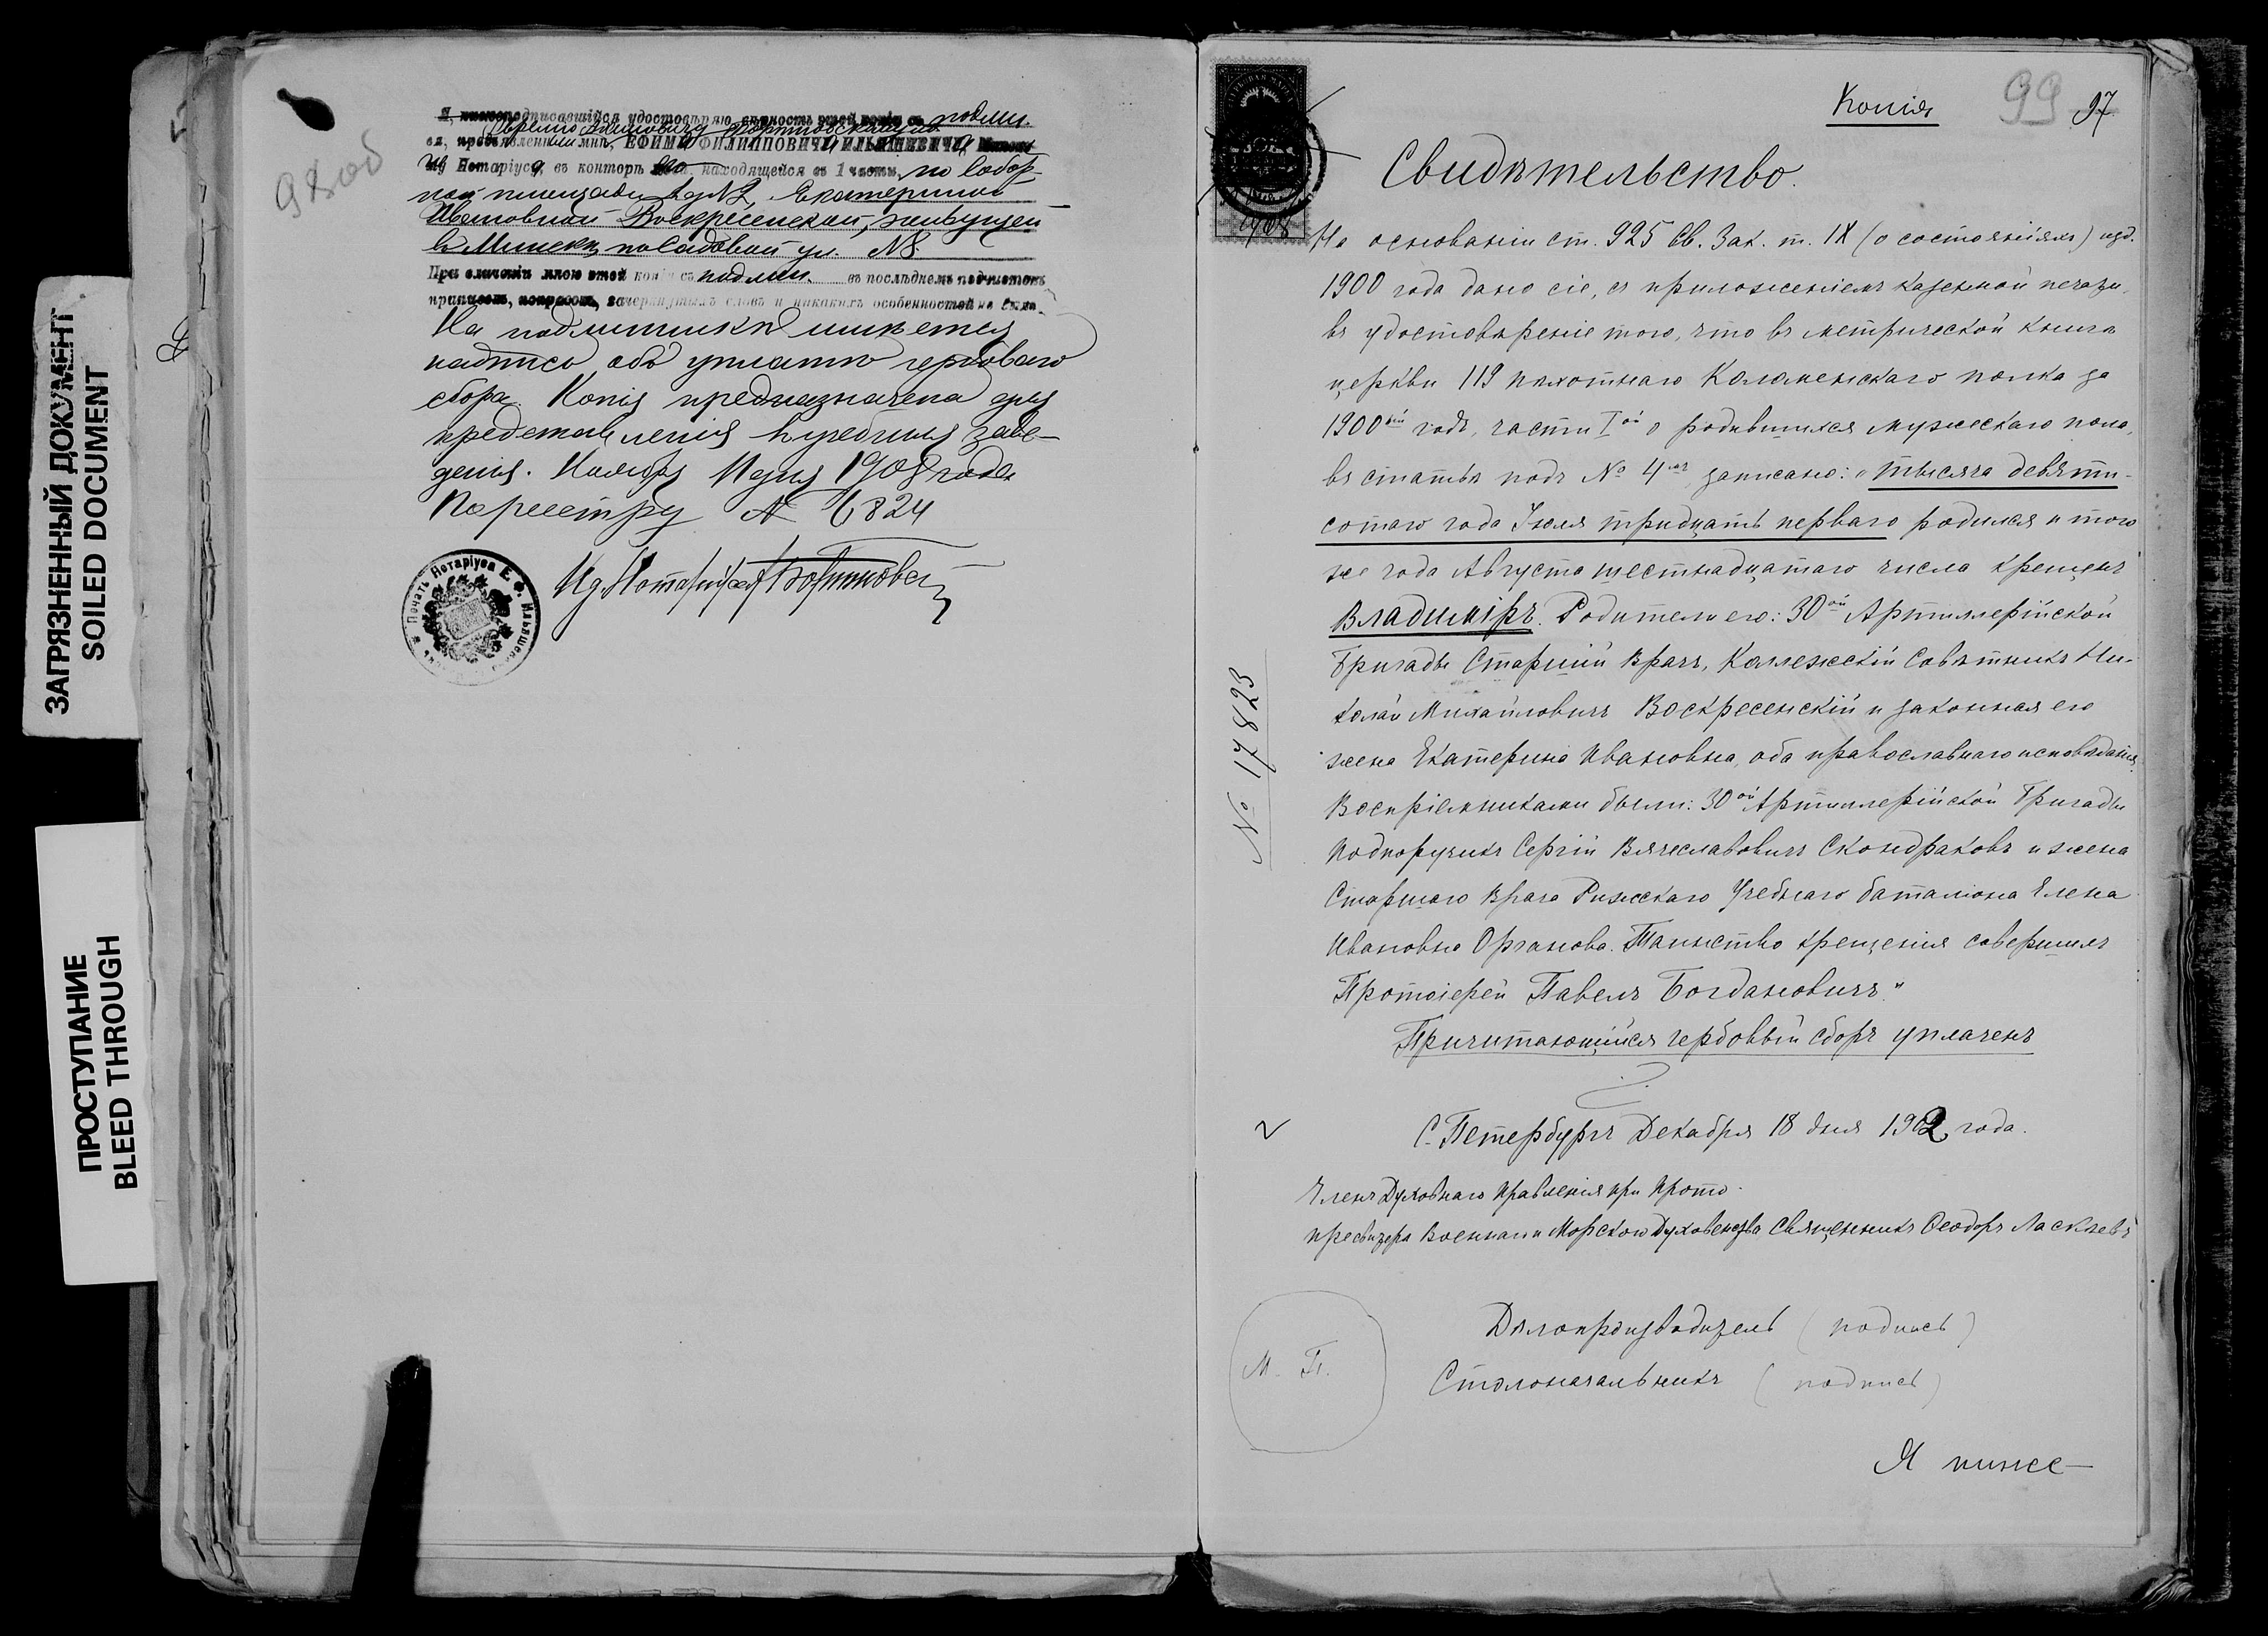 ЗАГРЯЗНЕННЫЙ ДОКУМЕНТ
SOILED DOCUMENT
ПРОСТУПАНИЕ
BLEED THROUGH
98об
Я, нижеподписавшійся удостовѣряю вѣрность этой копіи съ подлин.
ЕФИМУ ФИЛИППОВИЧУ ИЛЬЯШЕВИЧУ
Нотаріуса, въ конторѣ его находящейся въ 1 части, по Собор-
ной площади в д № 2, Екатериною
Ивановной Воскресенской, живущей
въ Минскѣ, по Садовой ул. № 8
При сличеніи мною этой копіи съ подлин. въ послѣднемъ подчистокъ
приписокъ, поправокъ, зачеркнутыхъ словъ и никакихъ особенностей не было.
На подлинникѣ имѣется
надпись объ уплатѣ гербоваго
сбора. Копія предназначена для
представленія въ учебныя заве-
денія. 1908 года
По реестру № 6824
Печать Нотаріуса Е. Ф. Ильяшевича
Копія
99
97
1908
Свидѣтельство.
На основаніи ст. 925 Св. Зак. т. IX (о состояніяхъ) изд.
1900 года дано сіе, съ приложеніемъ казенной печати,
въ удостовѣреніе того, что въ метрической книгѣ
церкви 119 пѣхотнаго Коломенскаго полка за
1900ый годъ, части I ой о родившихся мужескаго пола,
въ статьѣ подъ № 4мъ записано: „тысяча девяти-
сотаго года Іюля тридцать перваго родился и того
же года Августа шестнадцатаго числа крещенъ
Владиміръ. Родители его: 30ой Артиллерійской
Бригады Старшій Врачъ, Коллежскій Совѣтникъ Ни-
колай Михайловичъ Воскресенскій и законная его
жена Екатерина Ивановна, оба православнаго исповѣданія.
Воспріемниками были: 30ой Артиллерійской Бригады
Подпоручикъ Сергій Вячеславовичъ Скондраковъ и жена
Старшаго Врача Рижскаго Учебнаго баталіона Елена
Ивановна Органова. Таинство крещенія совершилъ
Протоіерей Павелъ Богдановичъ"
Причитающійся гербовый сборъ уплаченъ
№ 17823
С. Петербургъ Декабря 18 дня 1902 года.
Членъ Духовнаго Правленія при Прото-
пресвитерѣ Военнаго и Морского Духовенства Священникъ Ѳеодоръ Ласкѣевъ
Дѣлопроизводитель (подпись)
М. П.
Столоначальникъ (подпись)
Я ниже-